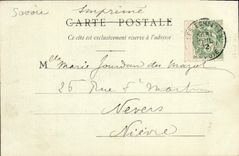 Savoie
Imprimé
CARTE POSTALE
Ce côté est exclusivement réservé à l'adresse
Mlle Marie Jourdan des Mazot
26 Rue St Martin
Nevers
Nièvre